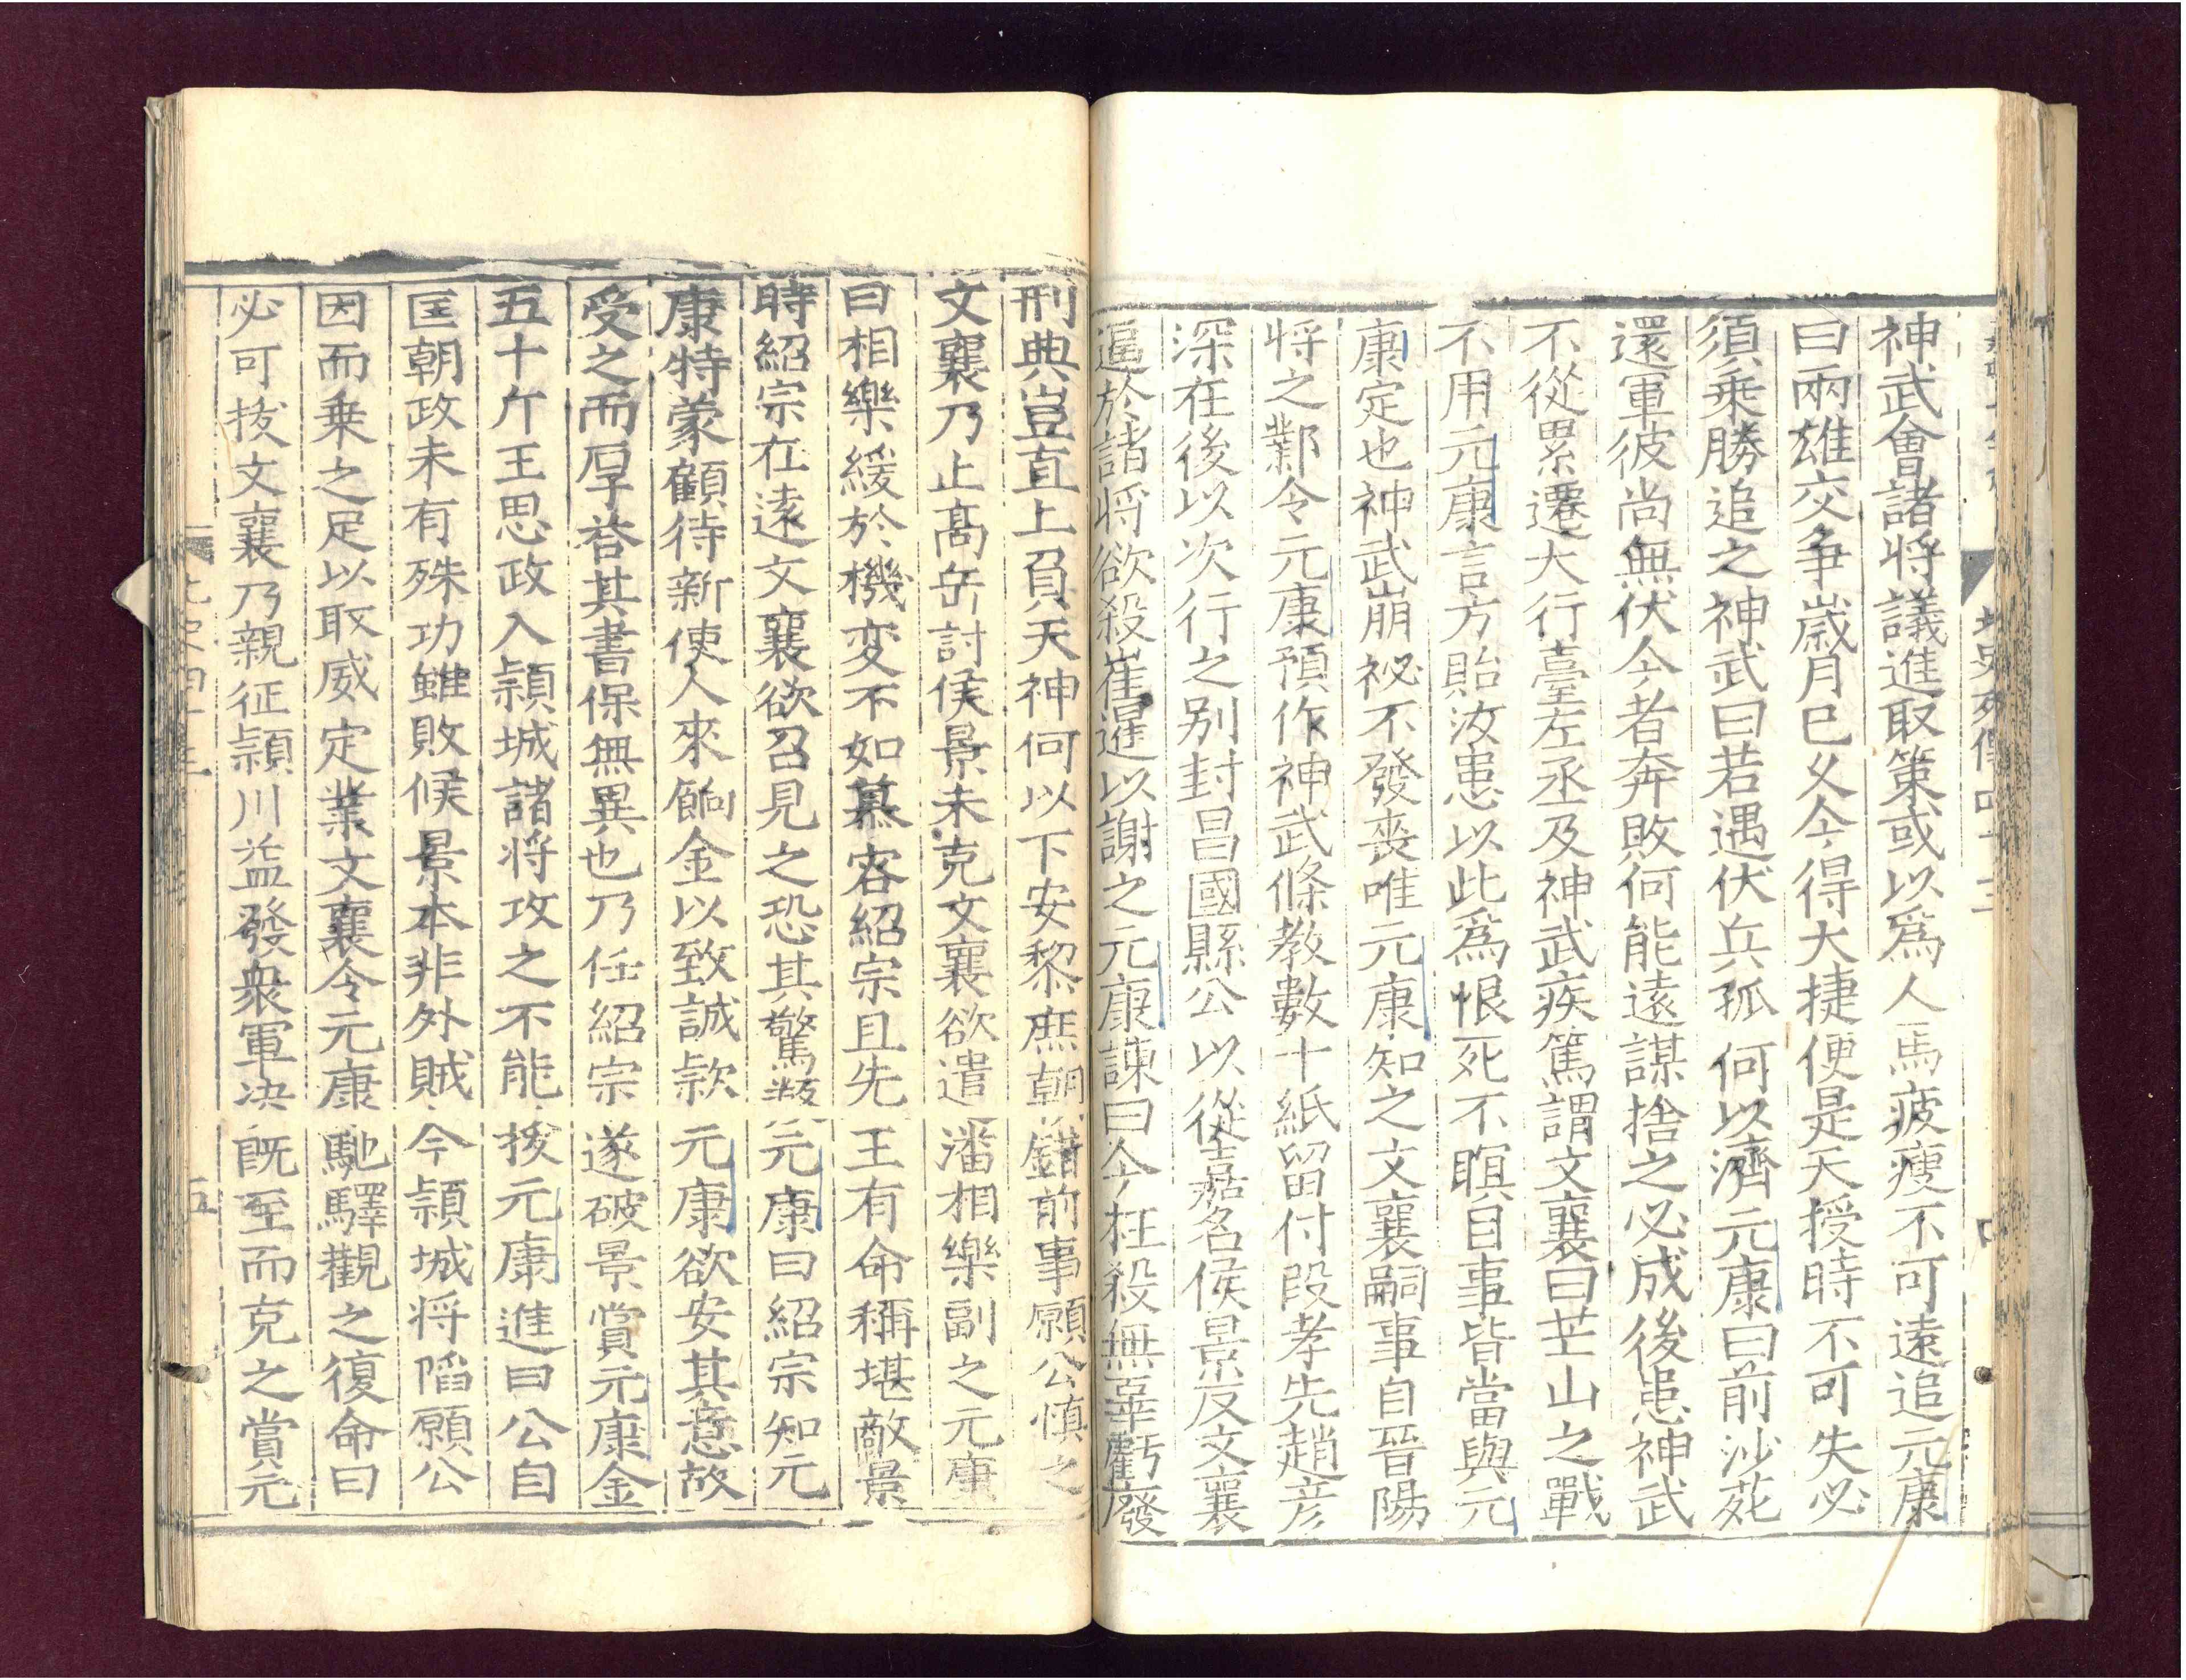 北史列傳四十三
神武會諸將議進取策或以爲人馬疲瘦不可遠追元康
曰兩雄交爭歲月已久今得大捷便是天授時不可失必
須乗勝追之神武曰若遇伏兵孤何以濟元康曰前沙苑
還軍彼尚無伏今者奔敗何能遠謀捨之必成後患神武
不從累遷大行臺左丞及神武疾篤謂文襄曰芒山之戰
不用元康言方貽汝患以此爲恨死不瞑目事皆當與元
康定也神武崩祕不發喪唯元康知之文襄嗣事自晉陽
將之鄴令元康預作神武條教數十紙留付段孝先趙彦
深在後以次行之别封昌國縣公以從嘉名侯景反文襄
逼於諸將欲殺崔暹以謝之元康諫曰今枉殺無辜虧廢
刑典豈直上負天神何以下安黎庶朝錯前事願公慎之
文襄乃止髙岳討侯景未克文襄欲遣潘相樂副之元康
曰相樂緩於機変不如慕容紹宗且先王有命稱堪敵景
時紹宗在遠文襄欲召見之恐其驚叛元康曰紹宗知元
康特蒙顧待新使人來餉金以致誠款元康欲安其意故
受之而厚荅其書保無異也乃任紹宗遂破景賞元康金
五十斤王思政入潁城諸將攻之不能拔元康進曰公自
匡朝政未有殊功雖敗侯景本非外賊今潁城将陷願公
因而乗之足以取威定業文襄令元康馳驛觀之復命曰
必可拔文襄乃親征潁川益發衆軍决既至而克之賞元
五